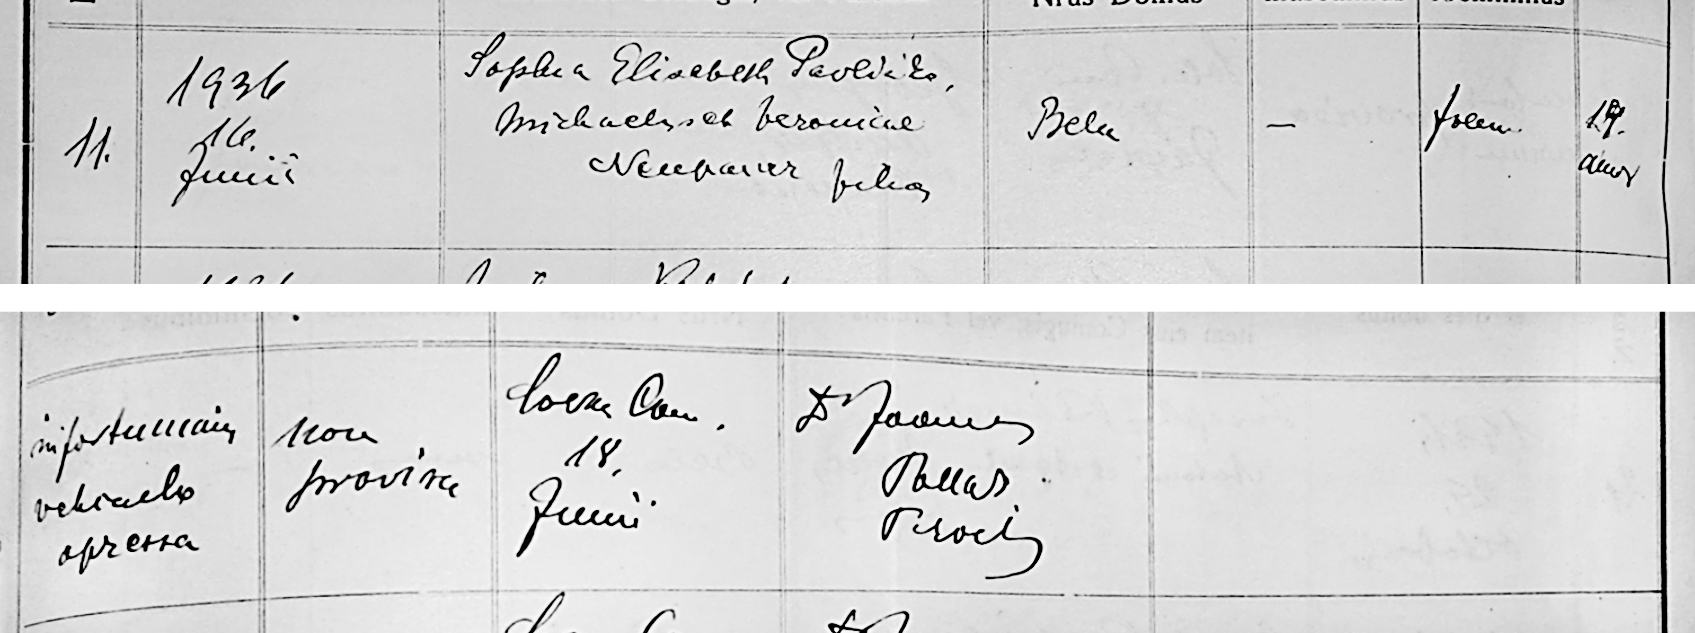 Nrus Domus
11.
1936
16.
Junii
Sophia Elisabeth Pavličko,
Michaelis et Veronicae
Neupauer filia
Bela
—
foem.
19.
annor
infortunium
vehiculo
opressa
non
provisa
Loeza Com.
18.
Junii
Dr Joannes
Pallas
Paroch